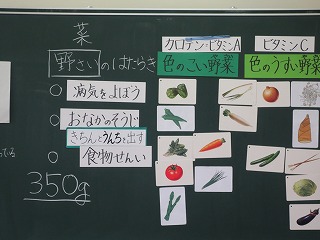 菜
野さいのはたらき
○ 病気をよぼう
○ おなかのそうじ
きちんとうんちを出す
○ 食物せんい
350g
カロテン=ビタミンA
色のこい野菜
ビタミンC
色のうすい野菜